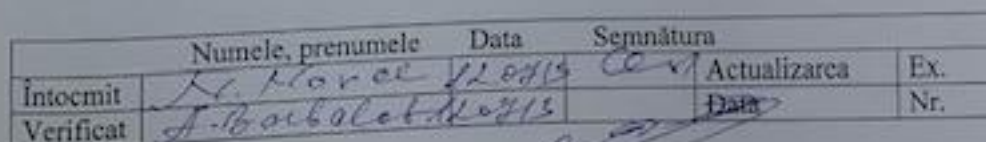 Numele, prenumele Data Semnătura
Întocmit 12.07.13 Actualizarea Ex.
Verificat A. Barbalat 12.07.13 Data Nr.